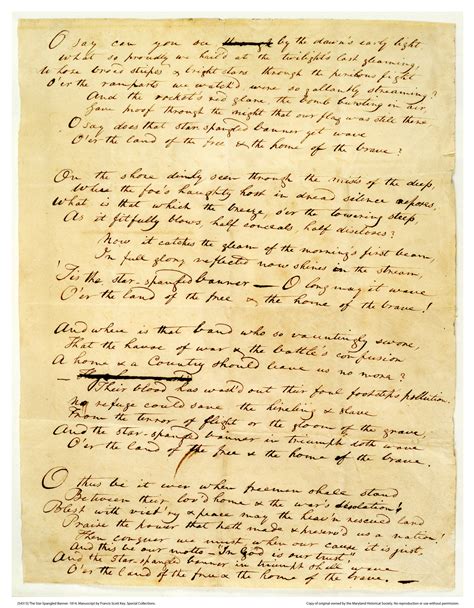 O say can you see by the dawn's early light
What so proudly we hail'd at the twilight's last gleaming,
Whose broad stripes & bright stars through the perilous fight
O'er the ramparts we watch'd were so gallantly streaming?
And the rocket's red glare, the bomb bursting in air,
Gave proof through the night that our flag was still there
O say does that star-spangled banner yet wave
O'er the land of the free & the home of the brave?
On the shore dimly seen through the mists of the deep,
Where the foe's haughty host in dread silence reposes,
What is that which the breeze, o'er the towering steep,
As it fitfully blows, half conceals, half discloses?
Now it catches the gleam of the morning's first beam,
In full glory reflected now shines in the stream,
'Tis the star-spangled banner — O long may it wave
O'er the land of the free & the home of the brave!
And where is that band who so vauntingly swore,
That the havoc of war & the battle's confusion
A home & a Country should leave us no more?
—
Their blood has wash'd out their foul footsteps pollution.
No refuge could save the hireling & slave
From the terror of flight or the gloom of the grave,
And the star-spangled banner in triumph doth wave
O'er the land of the free & the home of the brave.
O thus be it ever when freemen shall stand
Between their lov'd home & the war's desolation!
Blest with vict'ry & peace may the heav'n rescued land
Praise the power that hath made & preserv'd us a nation!
Then conquer we must, when our cause it is just,
And this be our motto — "In God is our trust,"
And the star-spangled banner in triumph shall wave
O'er the land of the free & the home of the brave. —
(54315) The Star Spangled Banner. 1814. Manuscript by Francis Scott Key, Special Collections.
Copy of original owned by the Maryland Historical Society. No reproduction or use without permission.